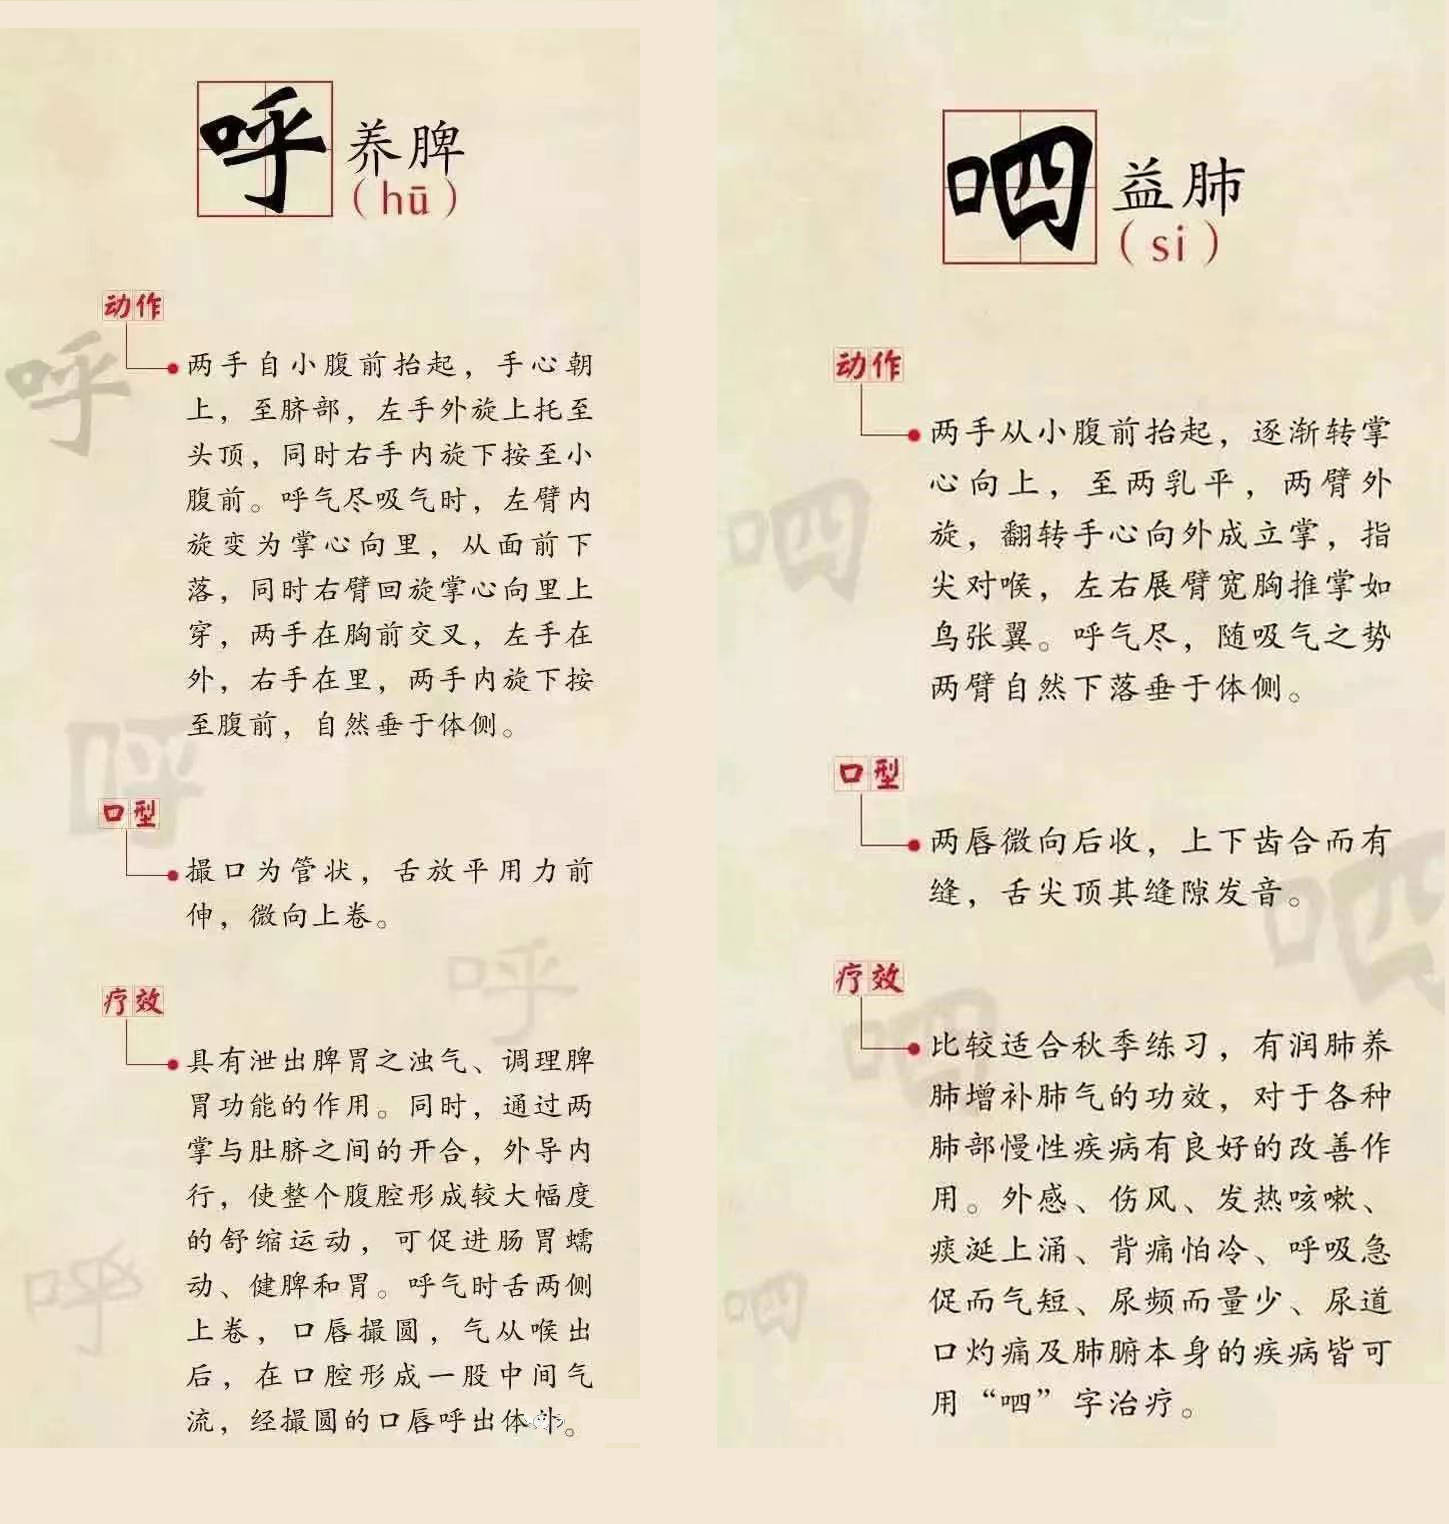 呼
养脾
(hū)
动作
两手自小腹前抬起，手心朝
上，至脐部，左手外旋上托至
头顶，同时右手内旋下按至小
腹前。呼气尽吸气时，左臂内
旋变为掌心向里，从面前下
落，同时右臂回旋掌心向里上
穿，两手在胸前交叉，左手在
外，右手在里，两手内旋下按
至腹前，自然垂于体侧。
口型
撮口为管状，舌放平用力前
伸，微向上卷。
疗效
具有泄出脾胃之浊气、调理脾
胃功能的作用。同时，通过两
掌与肚脐之间的开合，外导内
行，使整个腹腔形成较大幅度
的舒缩运动，可促进肠胃蠕
动、健脾和胃。呼气时舌两侧
上卷，口唇撮圆，气从喉出
后，在口腔形成一股中间气
流，经撮圆的口唇呼出体外。
呼
呼
呼
呼
呬
益肺
(si)
动作
两手从小腹前抬起，逐渐转掌
心向上，至两乳平，两臂外
旋，翻转手心向外成立掌，指
尖对喉，左右展臂宽胸推掌如
鸟张翼。呼气尽，随吸气之势
两臂自然下落垂于体侧。
口型
两唇微向后收，上下齿合而有
缝，舌尖顶其缝隙发音。
疗效
比较适合秋季练习，有润肺养
肺增补肺气的功效，对于各种
肺部慢性疾病有良好的改善作
用。外感、伤风、发热咳嗽、
痰涎上涌、背痛怕冷、呼吸急
促而气短、尿频而量少、尿道
口灼痛及肺腑本身的疾病皆可
用“呬”字治疗。
呬
呬
呬
呬